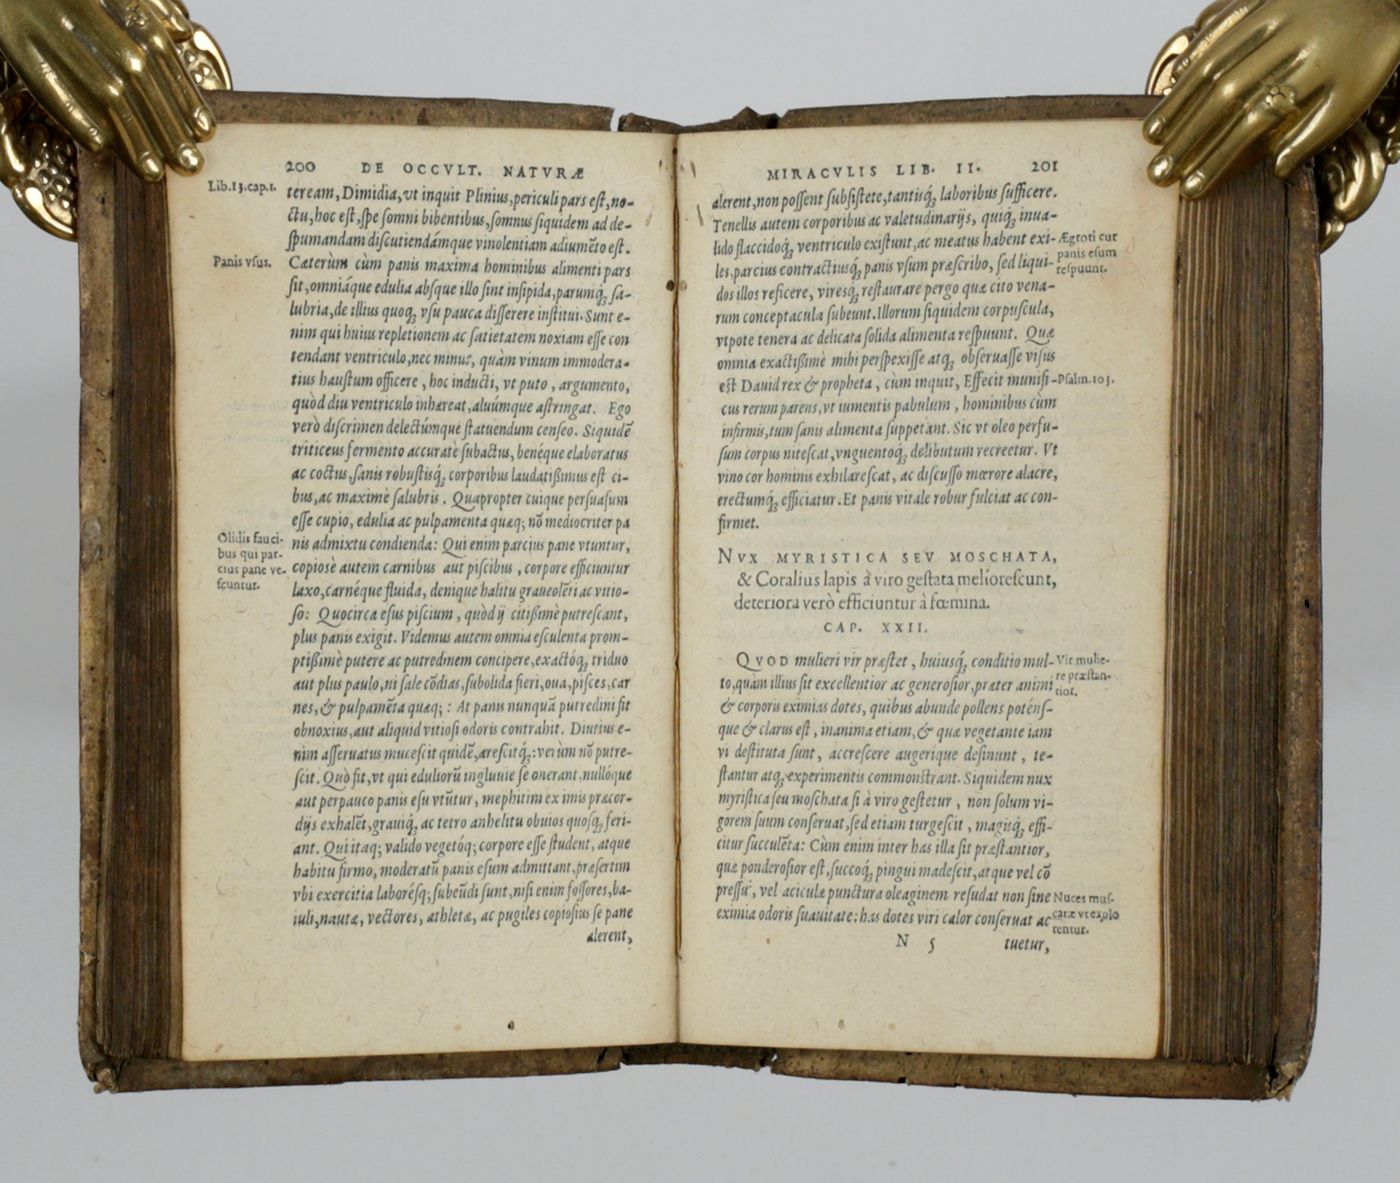 200 DE OCCVLT. NATVRÆ
Lib.13.cap.1.
teream, Dimidia, vt inquit Plinius, periculi pars est, no-
ctu, hoc est, spe somni bibentibus, somnus siquidem ad de-
spumandam discutiendámque vinolentiam adiumẽto est.
Panis vsus.
Cæterùm cùm panis maxima hominibus alimenti pars
sit, omniáque edulia absque illo sint insipida, parumq́; sa-
lubria, de illius quoq́; vsu pauca disserere institui. Sunt e-
nim qui huius repletionem ac satietatem noxiam esse con
tendant ventriculo, nec minus, quàm vinum immodera-
tius haustum officere, hoc inducti, vt puto, argumento,
quòd diu ventriculo inhæreat, aluúmque astringat. Ego
verò discrimen delectúmque statuendum censeo. Siquidẽ
triticeus fermento accuratè subactus, benéque elaboratus
ac coctus, sanis robustisq́; corporibus laudatißimus est ci-
bus, ac maximè salubris. Quapropter cuique persuasum
esse cupio, edulia ac pulpamenta quæq; nõ mediocriter pa
Olidis fauci-
bus qui par-
cius pane ve-
scuntur.
nis admixtu condienda: Qui enim parcius pane vtuntur,
copiosè autem carnibus aut piscibus, corpore efficiuntur
laxo, carnéque fluida, denique halitu graueolẽti ac vitio-
so: Quocirca esus piscium, quòd ij citißimè putrescant,
plus panis exigit. Videmus autem omnia esculenta prom-
ptißimè putere ac putredinem concipere, exactóq́; triduo
aut plus paulo, ni sale cõdias, subolida fieri, oua, pisces, car
nes, & pulpamẽta quæq; : At panis nunquã putredini fit
obnoxius, aut aliquid vitiosi odoris contrahit. Diutius e-
nim asseruatus mucescit quidẽ, arescitq́;: verùm nõ putre-
scit. Quò fit, vt qui eduliorũ ingluuie se onerant, nullóque
aut perpauco panis esu vtũtur, mephitim ex imis præcor-
dijs exhalẽt, grauiq́; ac tetro anhelitu obuios quosq́; feri-
ant. Qui itaq; valido vegetóq; corpore esse student, atque
habitu firmo, moderatũ panis esum admittant, præsertim
vbi exercitia laborésq; subeũdi sunt, nisi enim fossores, ba-
iuli, nautæ, vectores, athletæ, ac pugiles copiosius se pane
alerent,
MIRACVLIS LIB. II. 201
alerent, non possent subsistete, tantisq́; laboribus sufficere.
Tenellis autem corporibus ac valetudinarijs, quiq́; inua-
lido flaccidoq́; ventriculo existunt, ac meatus habent exi-
Ægroti cur
panis esum
respuunt.
les, parcius contractiusq́; panis vsum præscribo, sed liqui-
dos illos reficere, viresq́; restaurare pergo quæ cito vena-
rum conceptacula subeunt. Illorum siquidem corpuscula,
vtpote tenera ac delicata solida alimenta respuunt. Quæ
omnia exactißimè mihi perspexisse atq́; obseruasse visus
est Dauid rex & propheta, cùm inquit, Effecit munifi-
Psalm.103.
cus rerum parens, vt iumentis pabulum, hominibus cùm
infirmis, tum sanis alimenta suppetant. Sic vt oleo perfu-
sum corpus nitescat, vnguentoq́; delibutum recreetur. Vt
vino cor hominis exhilarescat, ac discusso mœrore alacre,
erectumq́; efficiatur. Et panis vitale robur fulciat ac con-
firmet.
NVX MYRISTICA SEV MOSCHATA,
& Coralius lapis à viro gestata meliorescunt,
deteriora verò efficiuntur à fœmina.
CAP. XXII.
QVOD mulieri vir præstet, huiusq́; conditio mul-
Vir mulie-
re præstan-
tior.
to, quàm illius sit excellentior ac generosior, præter animi
& corporis eximias dotes, quibus abunde pollens poténs-
que & clarus est, inanima etiam, & quæ vegetante iam
vi destituta sunt, accrescere augerique desinunt, te-
stantur atq́; experimentis commonstrant. Siquidem nux
myristica seu moschata si à viro gestetur, non solum vi-
gorem suum conseruat, sed etiam turgescit, magisq́; effi-
citur succulẽta: Cùm enim inter has illa sit præstantior,
quæ ponderosior est, succoq́; pingui madescit, atque vel cõ
pressu, vel aciculæ punctura oleaginem resudat non sine
Nuces mus-
catæ vt explo
rentur.
eximia odoris suauitate: has dotes viri calor conseruat ac
N 5 tuetur,